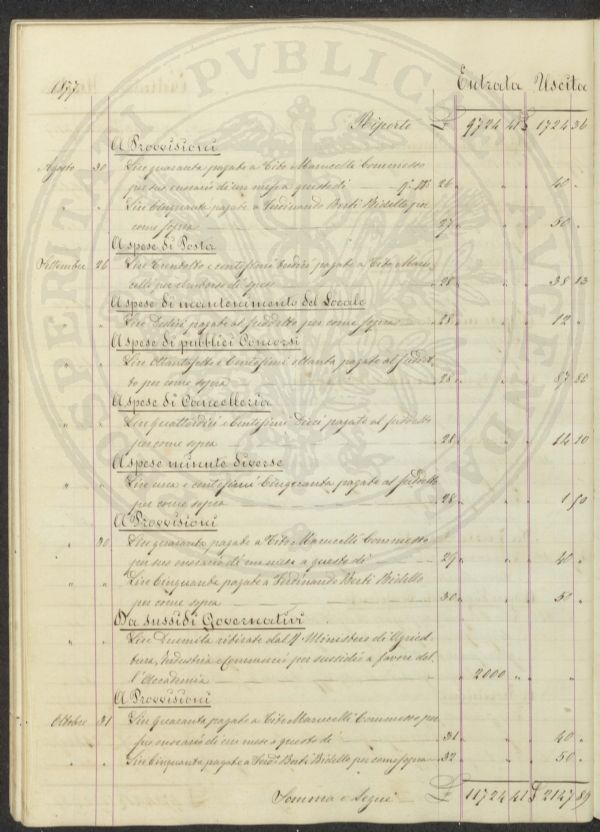 1877
Entrata Uscita
Riporto £ 9724 41 £ 1724 36
A Provvisioni
Agosto 30 Lire quaranta pagate a Tito Marucelli Commesso
per suo onorario di un mese a questo dì N.° 26 40 "
" " Lire Cinquanta pagate a Ferdinando Berti Bidello per
come sopra 27 50 "
A spese di Posta
Settembre 26 Lire Trentotto e centesimi tredici pagate a Tito Maru-
celli per rimborso di spese 28 38 13
A spese di mantenimento del Locale
" " Lire Dodici pagate al suddetto per come sopra 28 12 "
A spese di pubblici Concorsi
" " Lire Ottantasette e Centesimi ottanta pagate al suddet-
to per come sopra 28 87 80
A spese di Cancelleria
" " Lire quattordici e Centesimi Dieci pagate al suddetto
per come sopra 28 14 10
A spese minute diverse
" " Lire una e centesimi Cinquanta pagate al suddetto
per come sopra 28 1 50
A Provvisioni
" 30 Lire quaranta pagate a Tito Marucelli Commesso
per suo onorario di un mese a questo dì 29 40 "
" " Lire Cinquanta pagate a Ferdinando Berti Bidello
per come sopra 30 50 "
Da sussidi Governativi
" " Lire Duemila ritirate dal R. Ministero di Agricol-
tura, Industria e Commercio per sussidio a favore del-
l'Accademia 2000 "
A Provvisioni
Ottobre 31 Lire quaranta pagate a Tito Marucelli Commesso per
suo onorario di un mese a questo dì 31 40 "
" " Lire Cinquanta pagate a Ferd.° Berti Bidello per come sopra 32 50 "
Somma e Segue £ 11724 41 £ 2147 89
PROSPERITATI PVBLICAE AVGENDAE